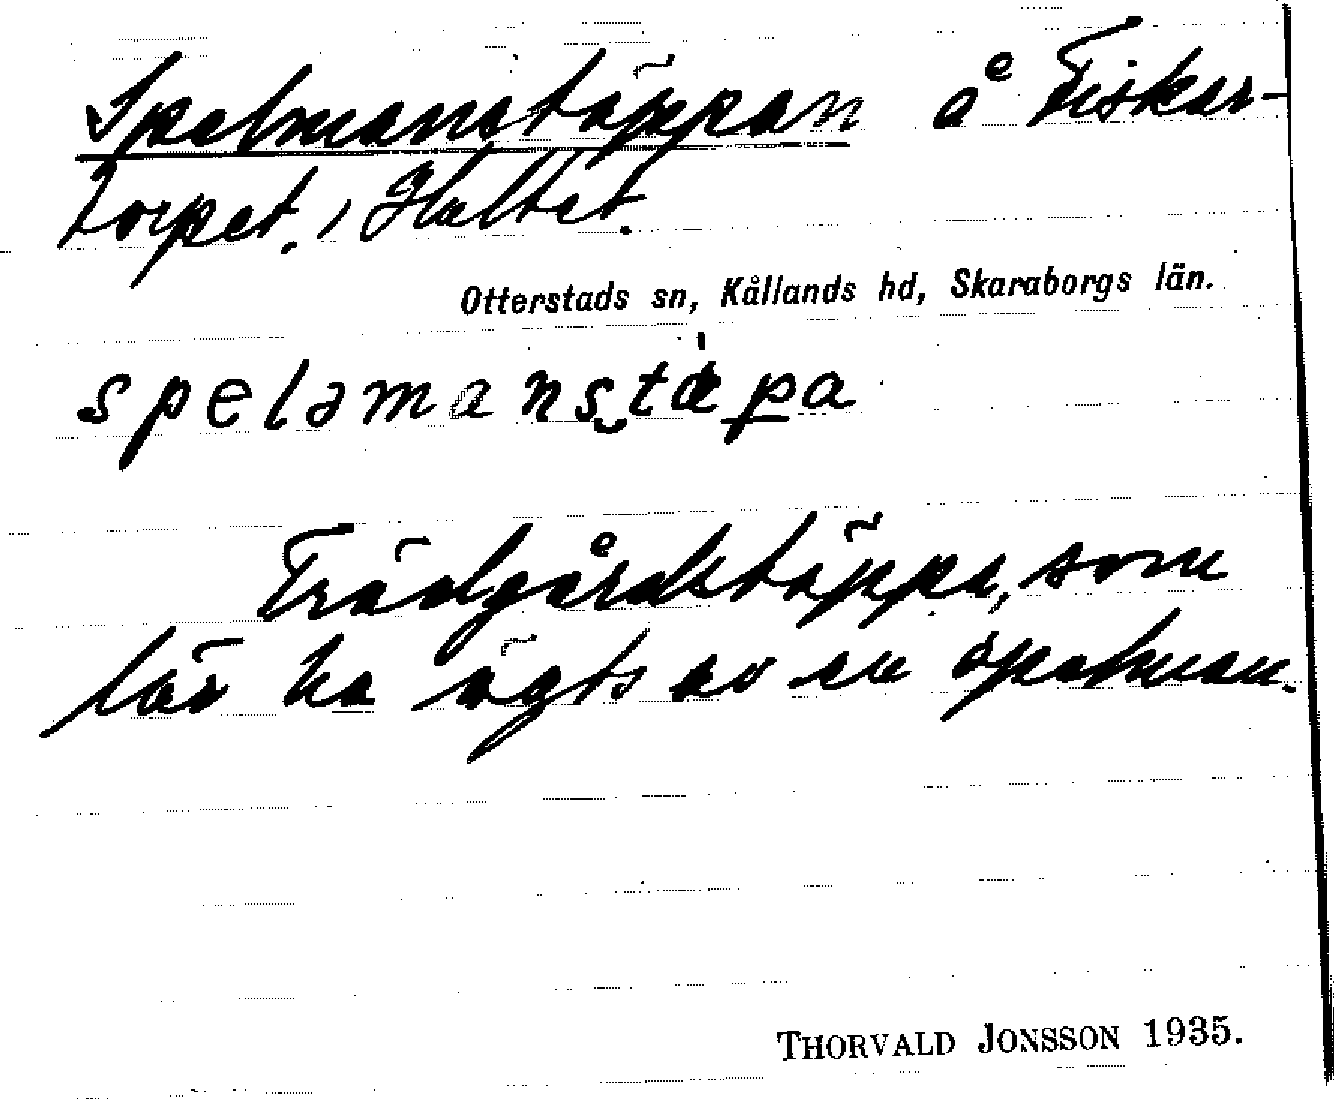 Spelmanstäppan å Fisker-
torpet, Hultet.
Otterstads sn, Kållands hd, Skaraborgs län.
speləmanstæpa
Trädgårdstäppa, som
lär ha ägts av en spelman.
THORVALD JONSSON 1935.